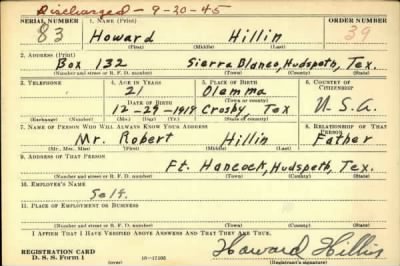 Discharged - 9-30-45
SERIAL NUMBER 1. NAME (Print) ORDER NUMBER
83 Howard Hillin 39
(First) (Middle) (Last)
2. ADDRESS (Print)
Box 132 Sierra Blanco, Hudspeth, Tex.
(Number and street or R. F. D. number) (Town) (County) (State)
3. TELEPHONE 4. AGE IN YEARS 5. PLACE OF BIRTH 6. COUNTRY OF CITIZENSHIP
21 Olemma
DATE OF BIRTH (Town or county)
12-29-1919 Crosby Tex U.S.A.
(Exchange) (Number) (Mo.) (Day) (Yr.) (State or country)
7. NAME OF PERSON WHO WILL ALWAYS KNOW YOUR ADDRESS 8. RELATIONSHIP OF THAT PERSON
Mr. Robert Hillin Father
(Mr., Mrs., Miss) (First) (Middle) (Last)
9. ADDRESS OF THAT PERSON
Ft. Hancock, Hudspeth, Tex.
(Number and street or R. F. D. number) (Town) (County) (State)
10. EMPLOYER'S NAME
Self.
11. PLACE OF EMPLOYMENT OR BUSINESS
(Number and street or R. F. D. number) (Town) (County) (State)
I AFFIRM THAT I HAVE VERIFIED ABOVE ANSWERS AND THAT THEY ARE TRUE.
REGISTRATION CARD
D. S. S. Form 1 Howard Hillin
(Registrant's signature)